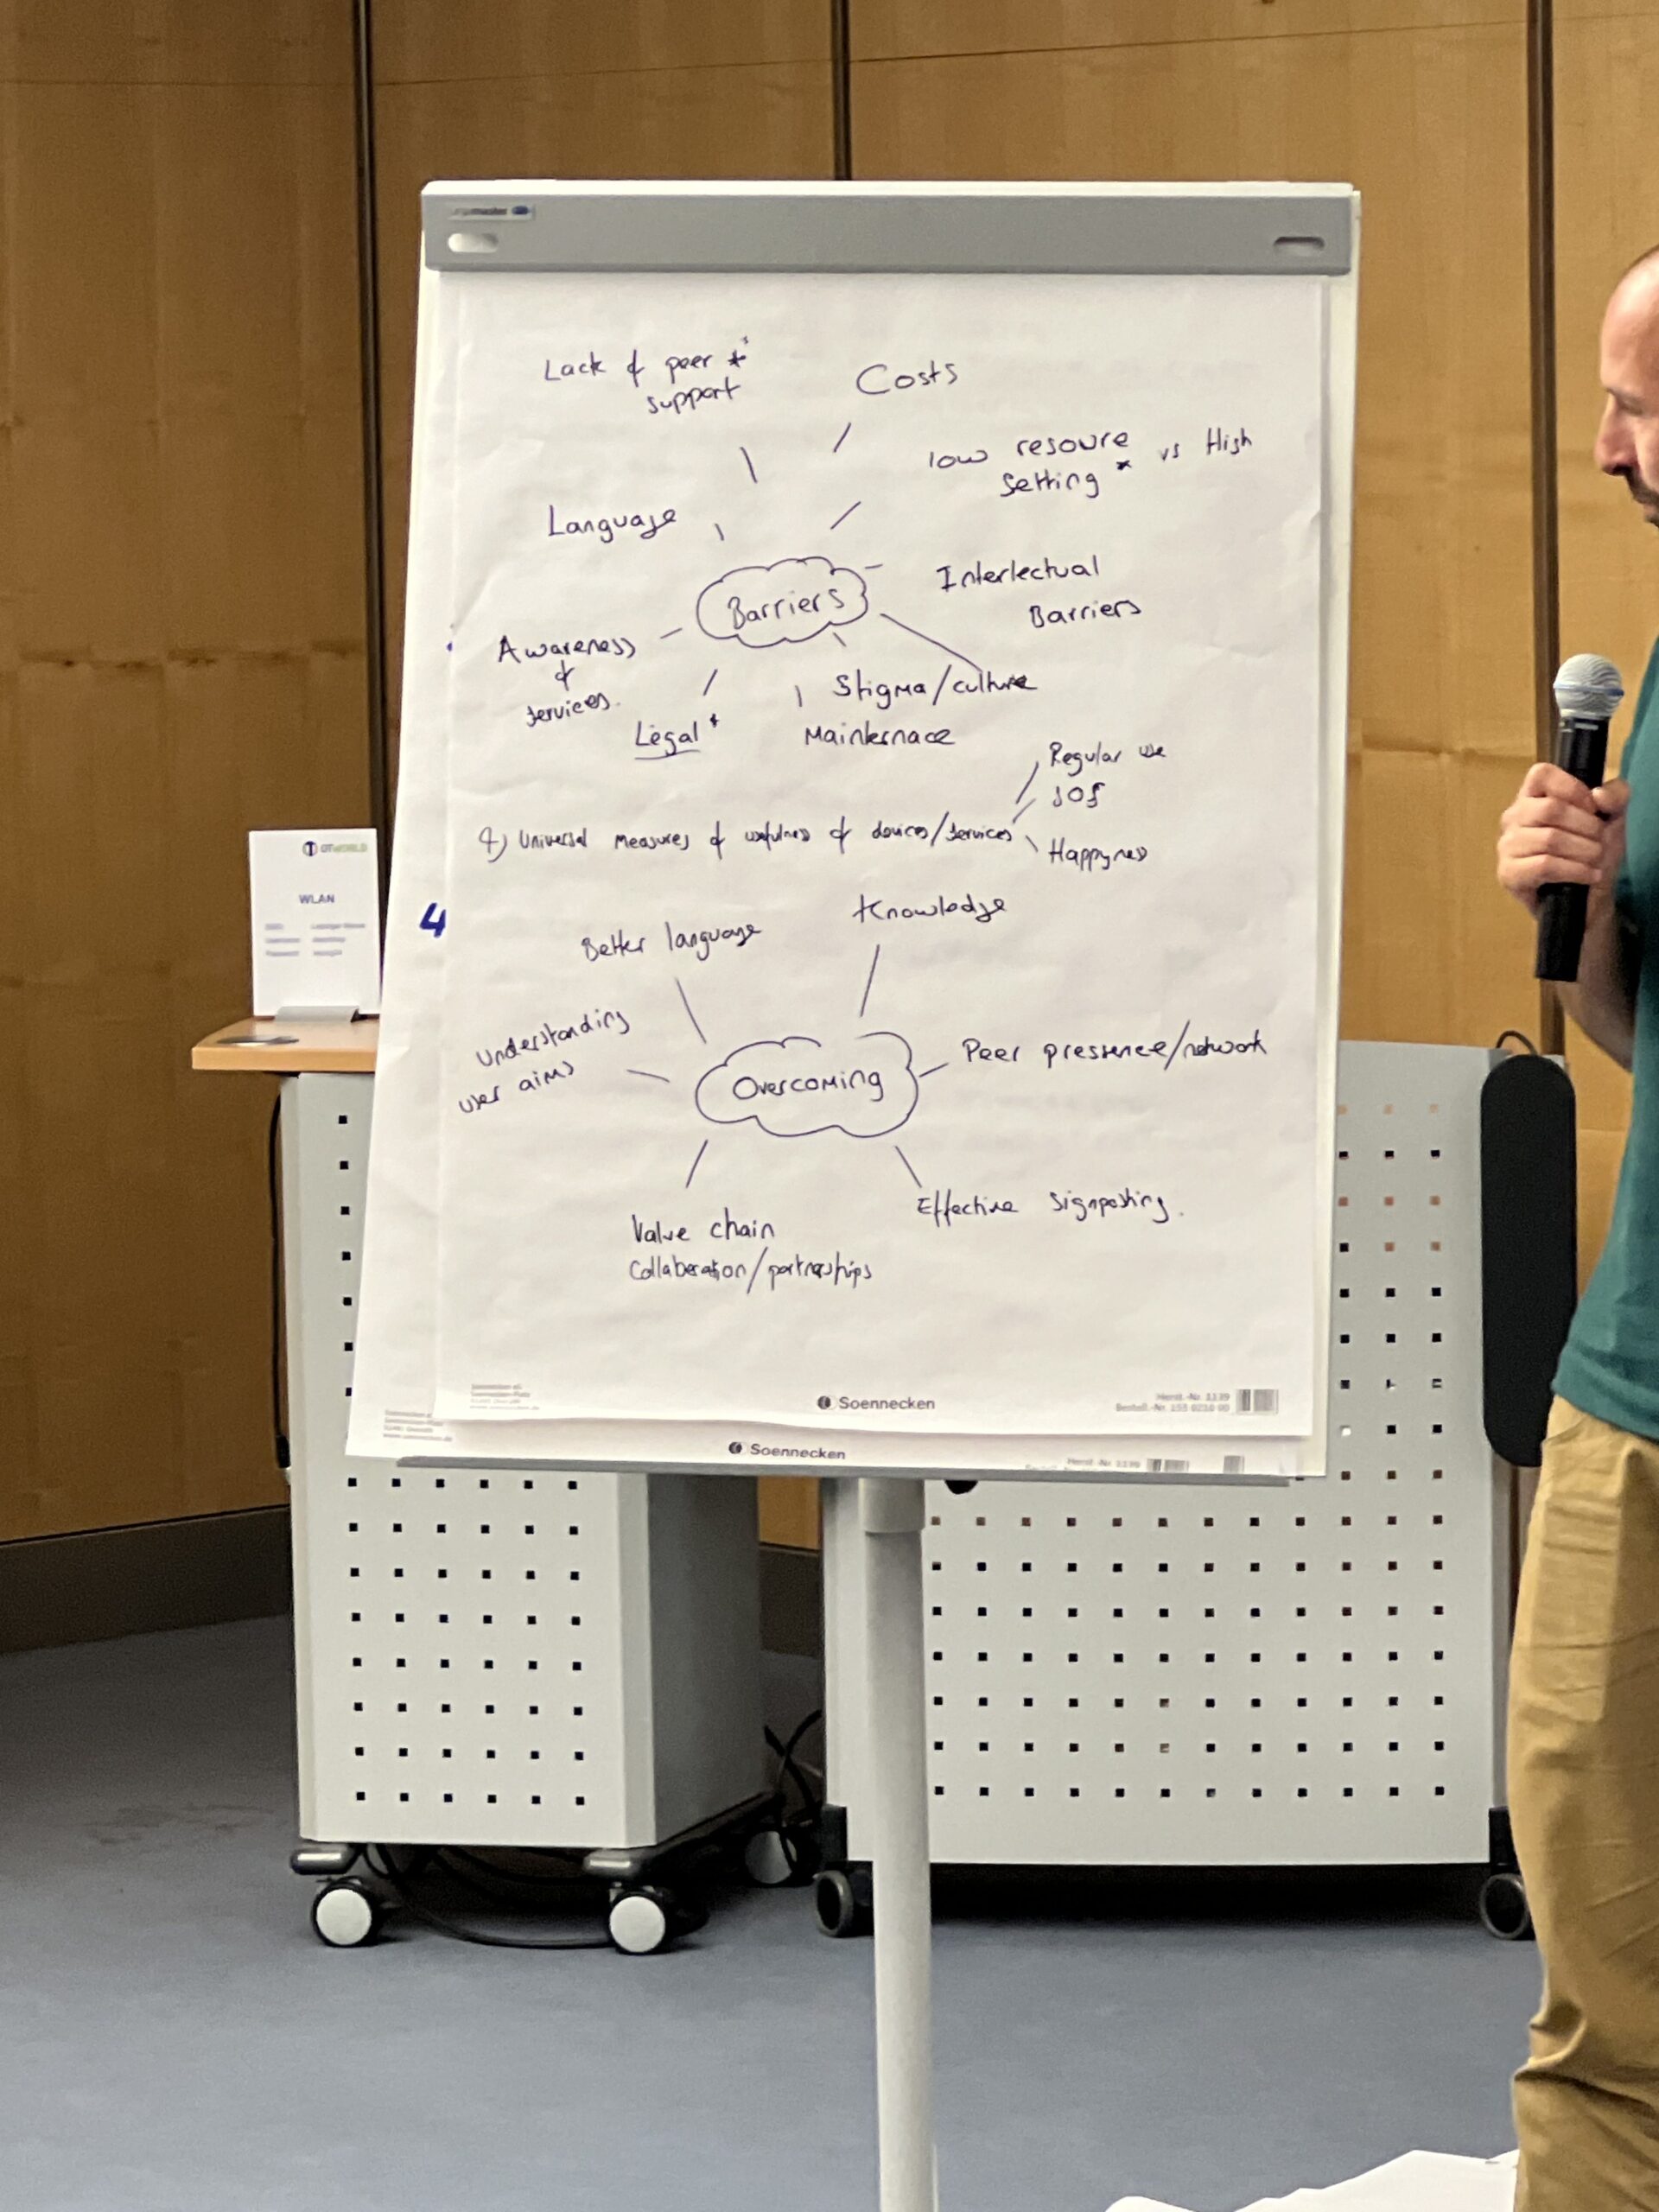 Lack of peer *
support
Costs
low resoure vs High
Setting *
Language
Barriers
Interlectual
Barriers
Awareness
of
services.
Stigma/culture
Legal *
Mainternace
Regular use
Universal measures of usefulness of devices/services
Happyness
4
Better language
Knowledge
Understanding
user aims
Overcoming
Peer presence/network
Effective signposting.
Value chain
Collaberation/partnerships
Soennecken
Herst.-Nr. 1139
Soennecken
Herst.-Nr. 1139
OTWORLD
WLAN